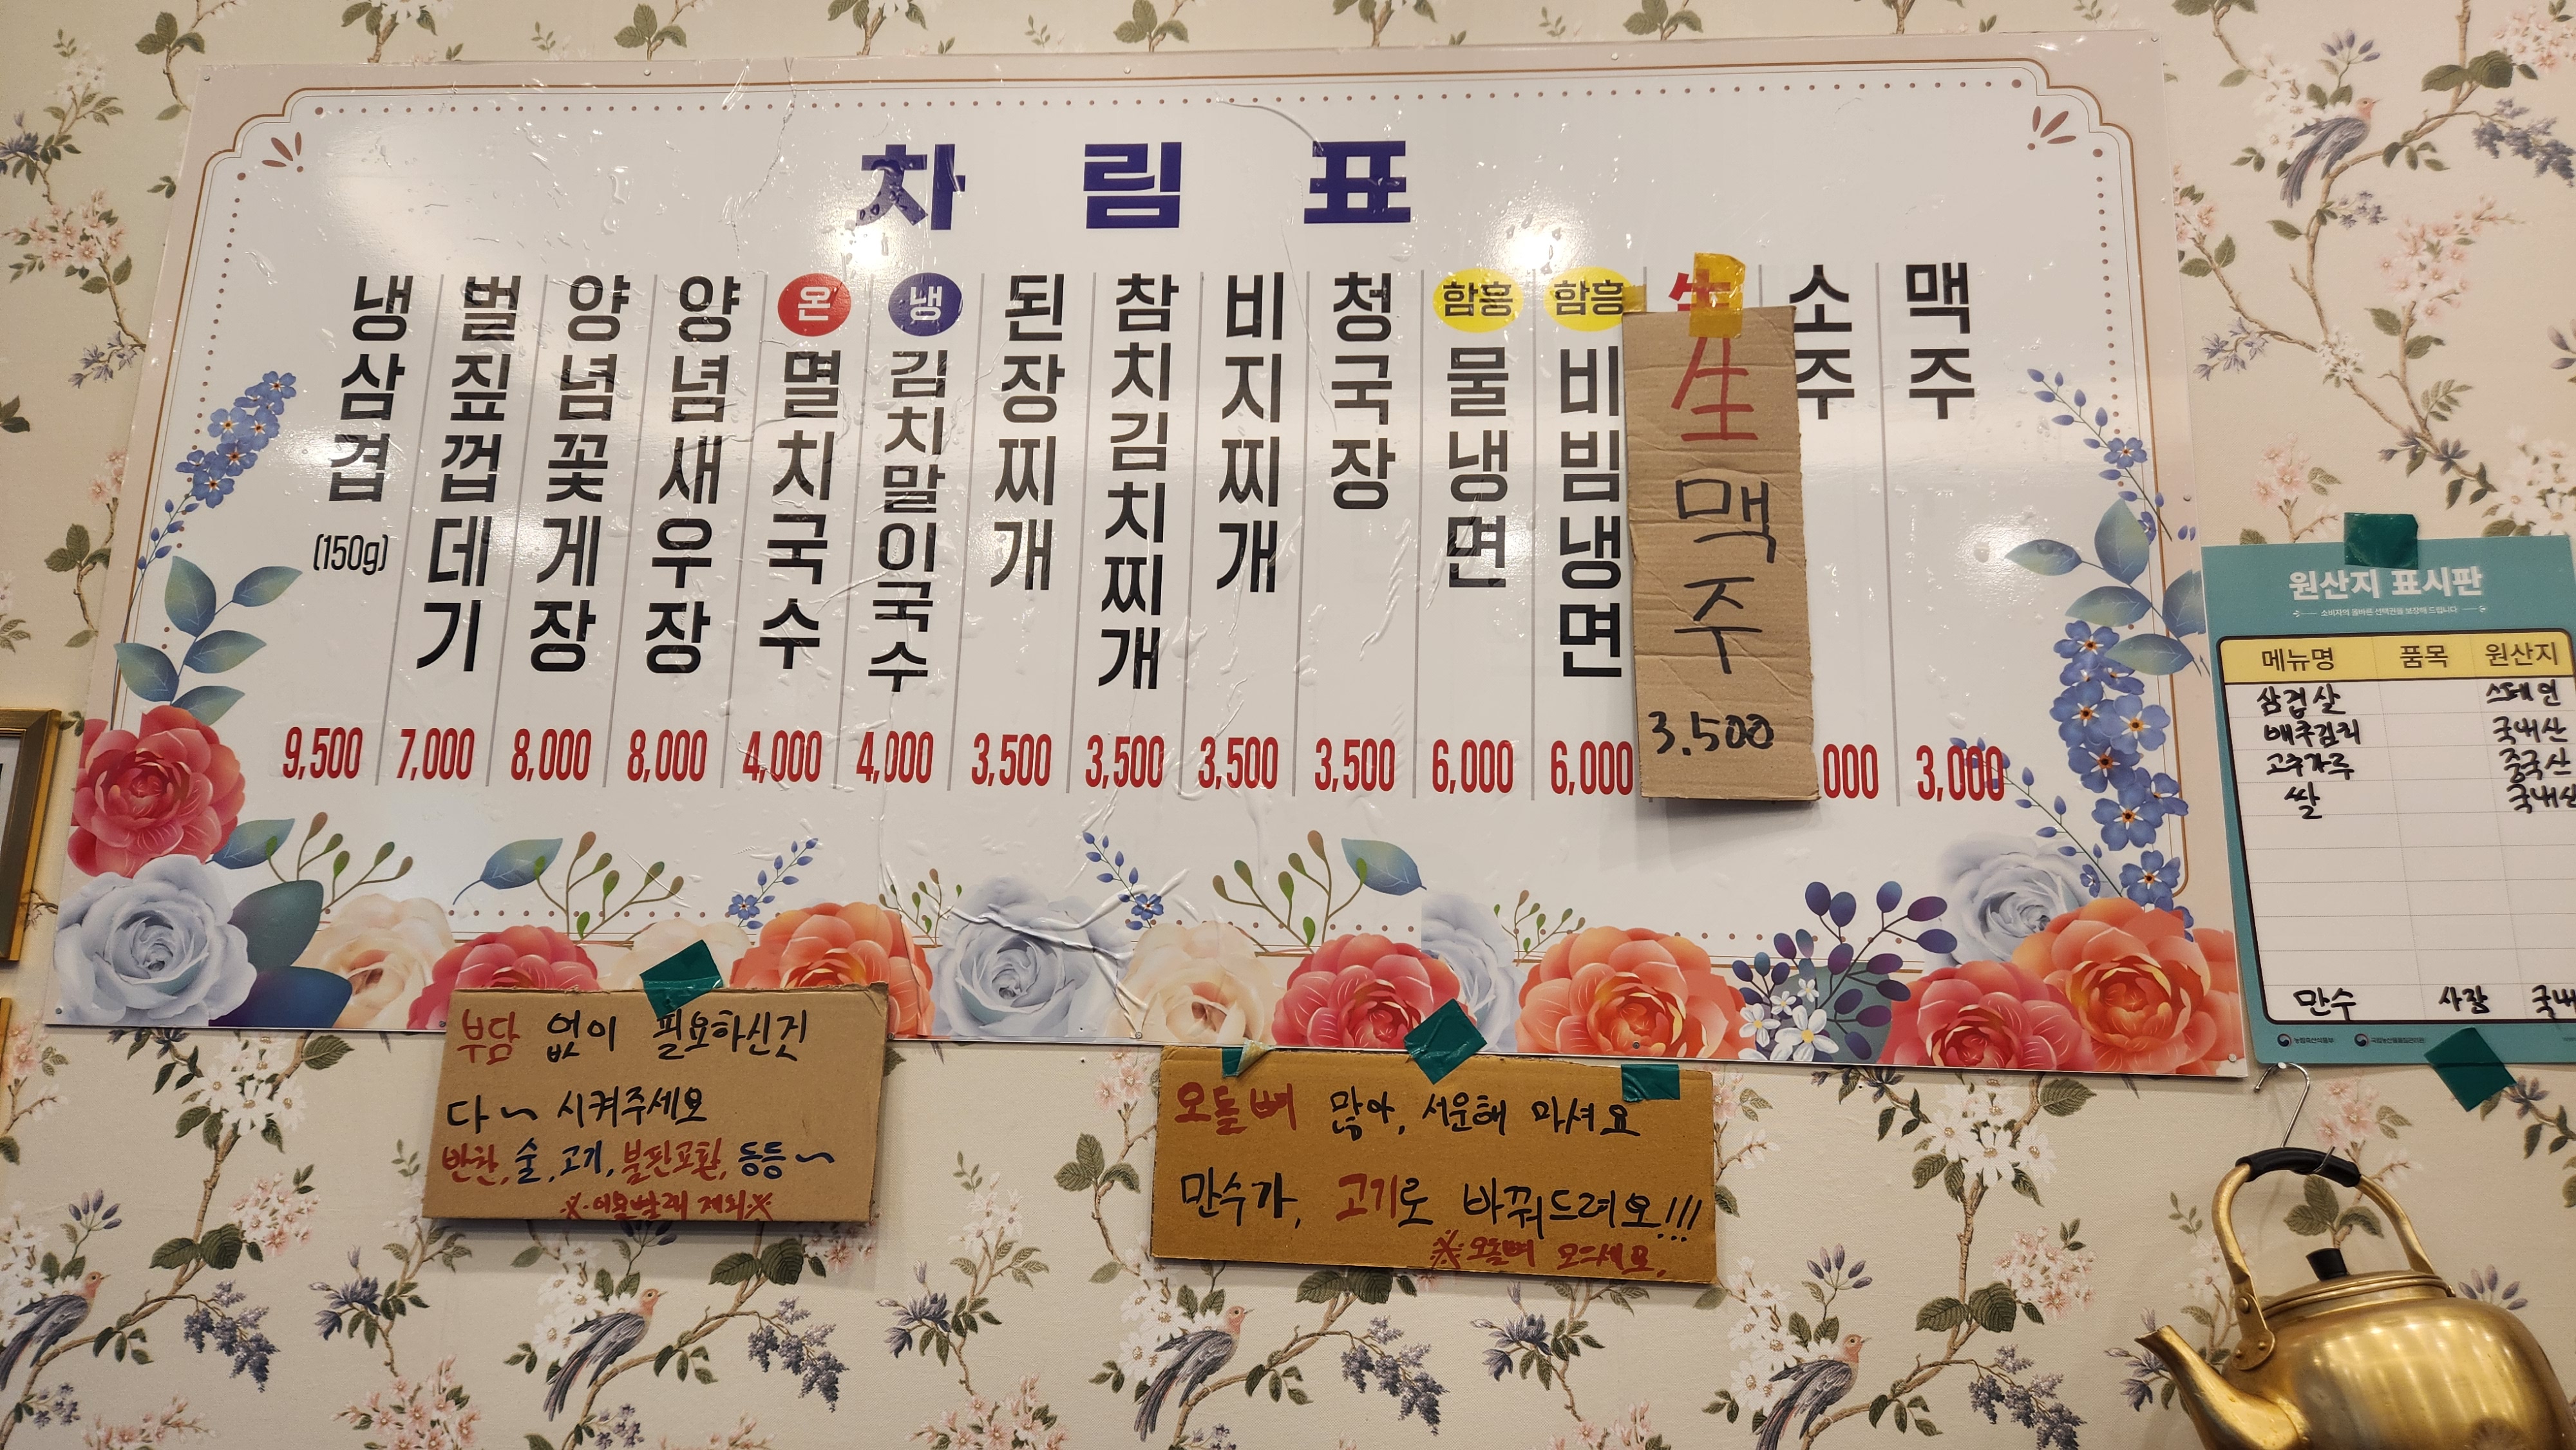 차림표
냉삼겹 (150g) 9,500
벌짚껍데기 7,000
양념꽃게장 8,000
양념새우장 8,000
온 멸치국수 4,000
냉 김치말이국수 4,000
된장찌개 3,500
참치김치찌개 3,500
비지찌개 3,500
청국장 3,500
함흥 물냉면 6,000
함흥 비빔냉면 6,000
生
生맥주 3.500
소주 000
맥주 3,000
부담 없이 필요하신것
다~ 시켜주세요
반찬, 술, 고기, 불판교환, 등등~
※이불빨래 제외※
오돌뼈 많아, 서운해 마셔요
만수가, 고기로 바꿔드려요!!!
※오돌뼈 모으세요.
원산지 표시판
소비자의 올바른 선택권을 보장해 드립니다
메뉴명 품목 원산지
삼겹살 스페인
배추김치 국내산
고추가루 중국산
쌀 국내산
만수 사람 국내
농림축산식품부 국립농산물품질관리원